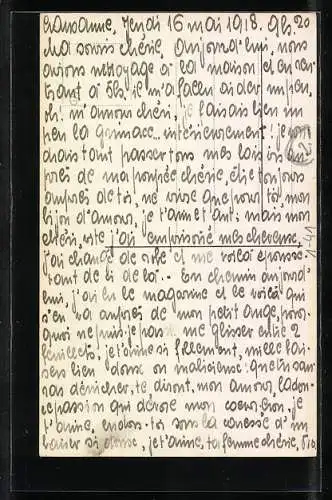 Lausanne, Jeudi 16 mai 1918. 9h.20
Ma souris chérie, aujourd'hui, nous
avions nettoyage à la maison et en ren-
trant à 5h. il m'a fallu aider un peu,
oh! m'amour chéri, je faisais bien un
peu la grimace intérieurement: je vou-
drais tant passer tous mes loisirs au-
près de ma poupée chérie, être toujours
auprès de toi, ne vivre que pour toi, mon
bijou d'amour, je t'aime tant, mais mon
chéri, j'ai emprisonné mes cheveux,
j'ai changé de robe et me voilà
tant de toi. - En chemin aujourd'
hui, j'ai eu le magazine et le voilà qui
s'en va auprès de mon petit ange, pour-
quoi ne puis-je pas me glisser entre 2
feuillets, je t'aime si follement, mille bai-
sers bien doux en malicieuse: que tu sau-
ras dénicher, te diront, mon amour, l'ardon-
te passion qui dévore mon coeur, bon, je
t'aime, endors-toi sous la caresse d'un
baiser si doux, je t'aime, ta femme chérie,
2